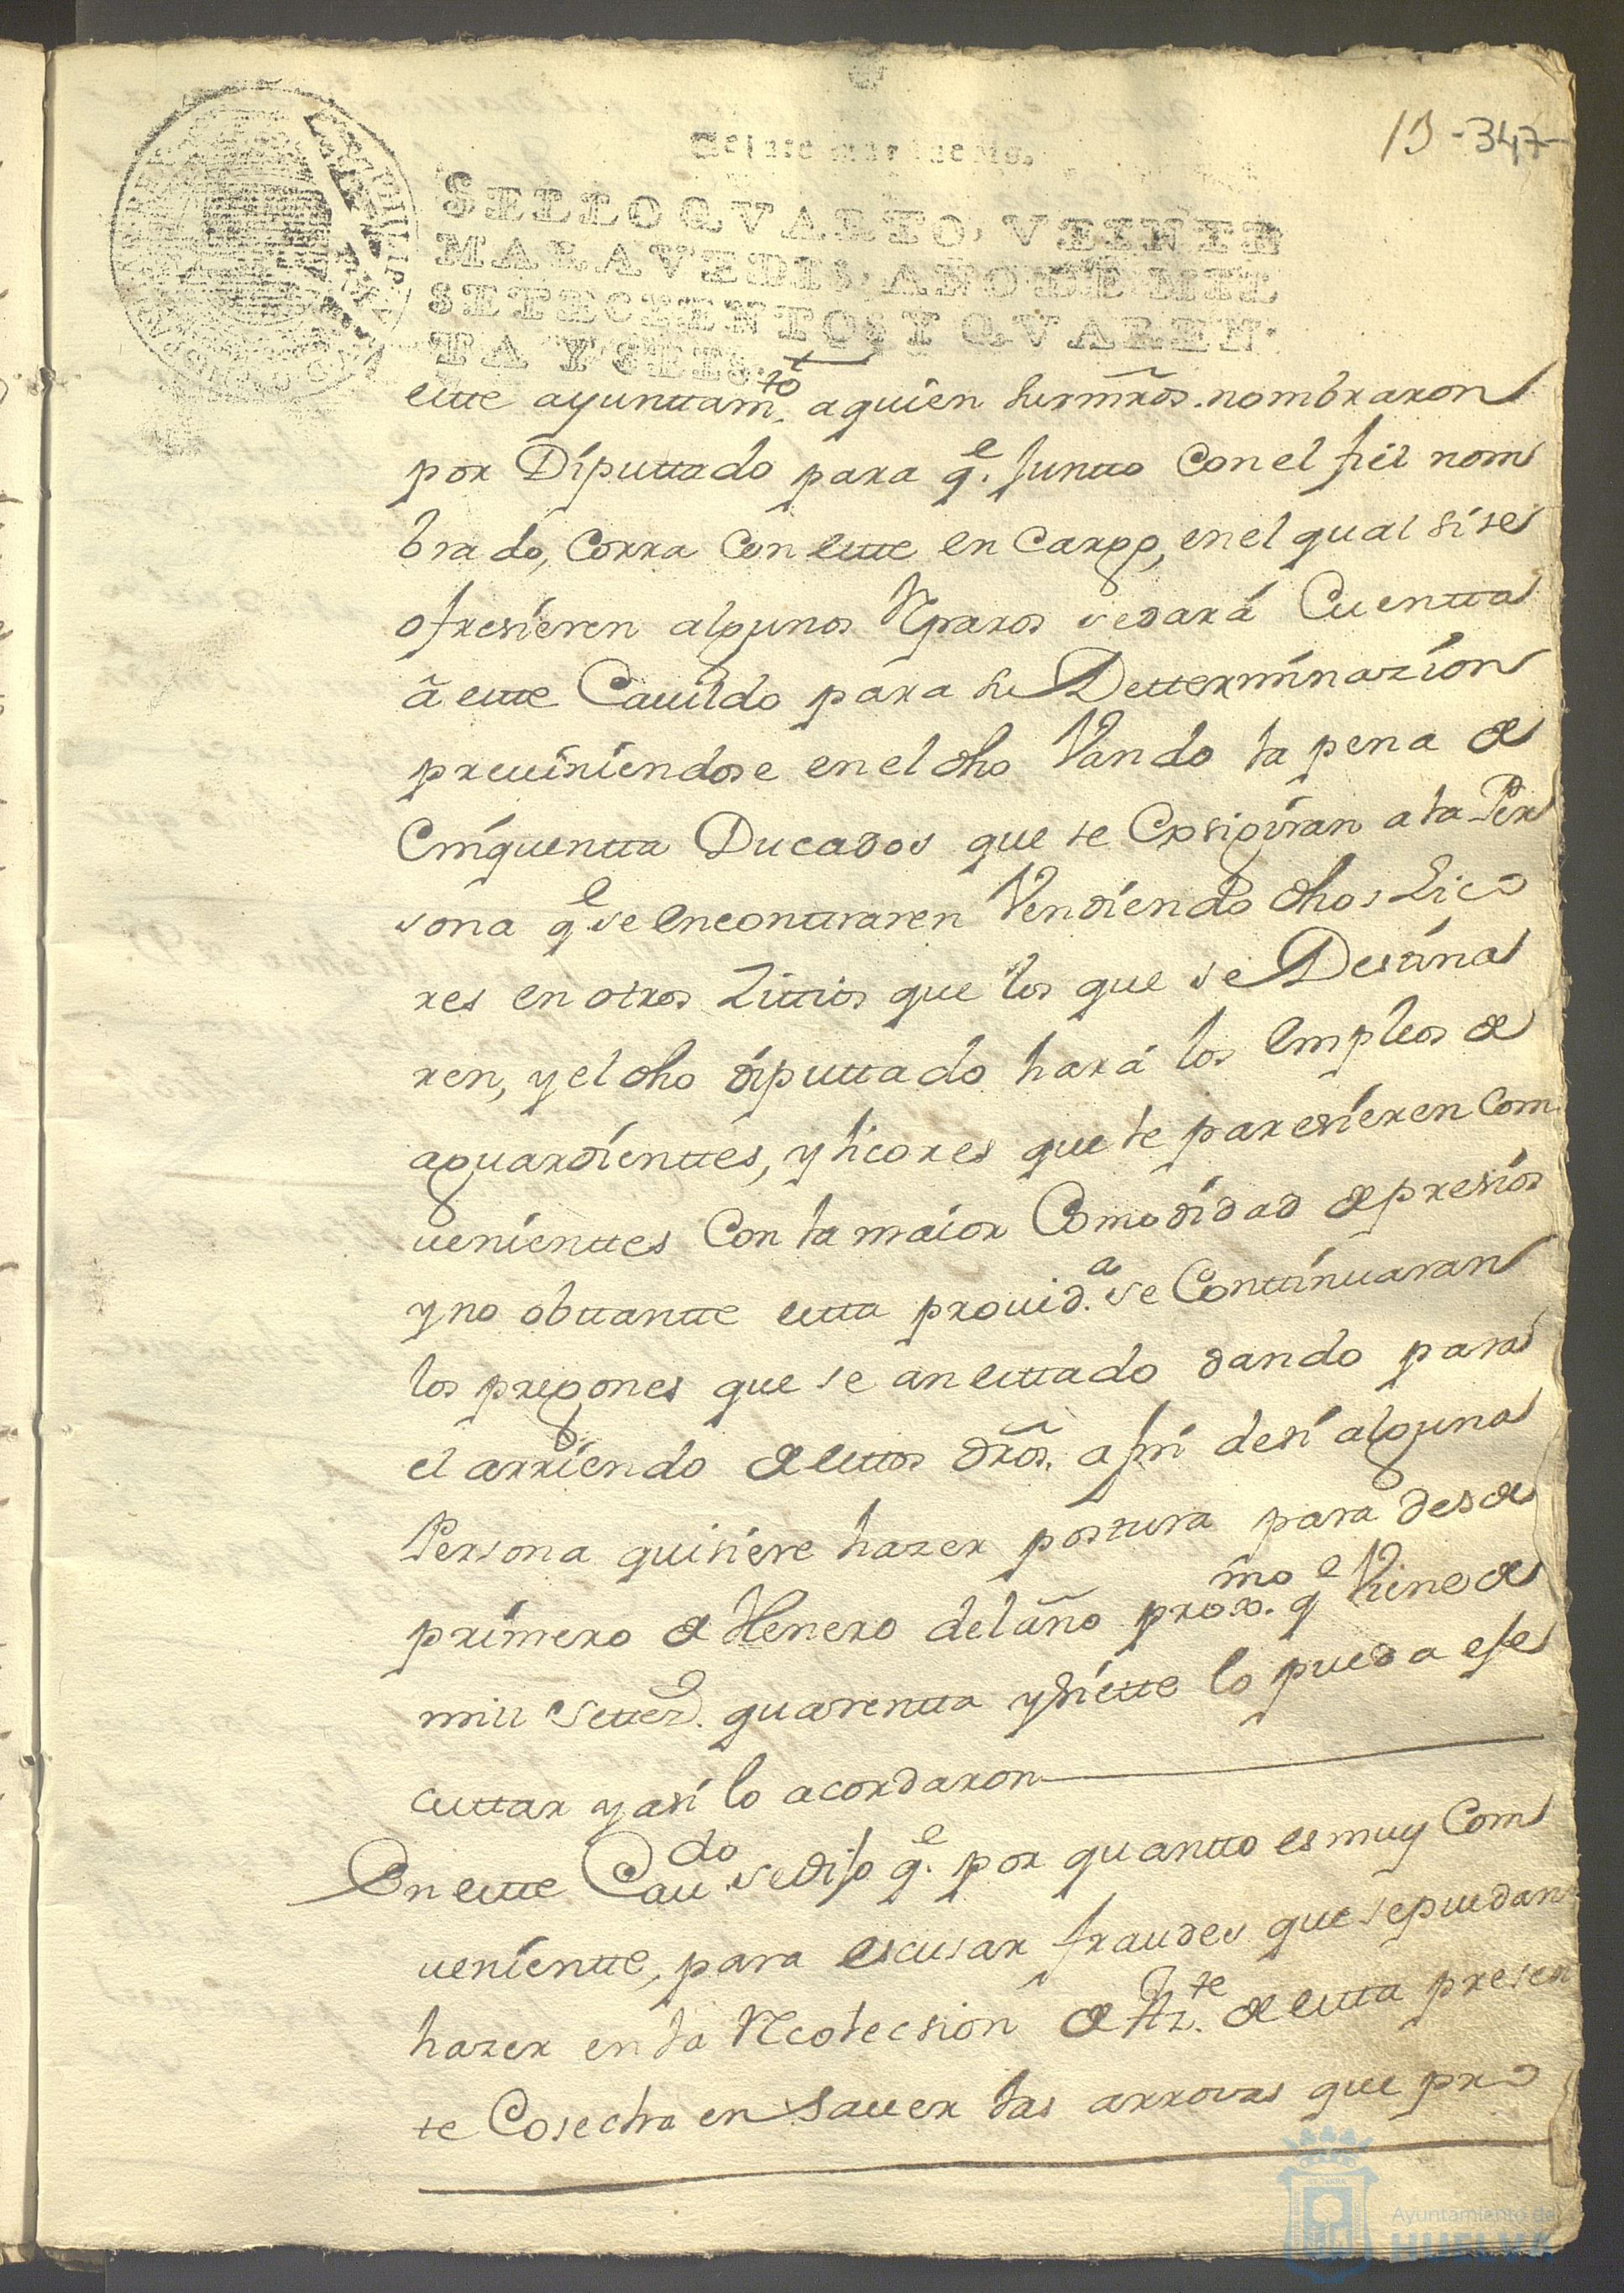 13 -347-
Veinte marauedis.
SELLO QVARTO, VEINTE
MARAVEDIS, AÑO DE MIL
SETECIENTOS Y QVAREN-
TA Y SEIS.
este ayunttamto. a quien sus mrds. nombraron
por Diputtado para qe. Juntto con el fiel nom
brado, corra con este encargo, en el qual si se
ofresieren algunos Reparos se dará Cuentta
á este Cauildo para su Detterminazion
preuiniendose en el dho Vando la pena de
Cinquentta Ducados que se Exsigiran a la Per
sona qe se encontraren Vendiendo dhos Lico
res en otros Zittios que los que se Destina
ren, y el dho diputtado hará los empleos de
aguardienttes, y licores que le paresieren com
uenienttes Con la maior Comodidad de presios
y no obstantte esta prouida. se Continuaran
los pregones que se an esttado dando para
el arriendo de estos dros. assi de si alguna
Persona quisiere hazer postura para desde
primero de Henero del año proxmo. qe Viene de
mill settezs. quarentta y siette lo pueda efe
cuttar y asi lo acordaron
En este Caudo. se dijo qe. por quantto es muy com
ueniente, para escusar fraudes que se puedan
hazer en la Recolecsion de Azte. de esta presen
te Cosecha en sauer las arrovas que pro
Ayuntamiento de
HUELVA